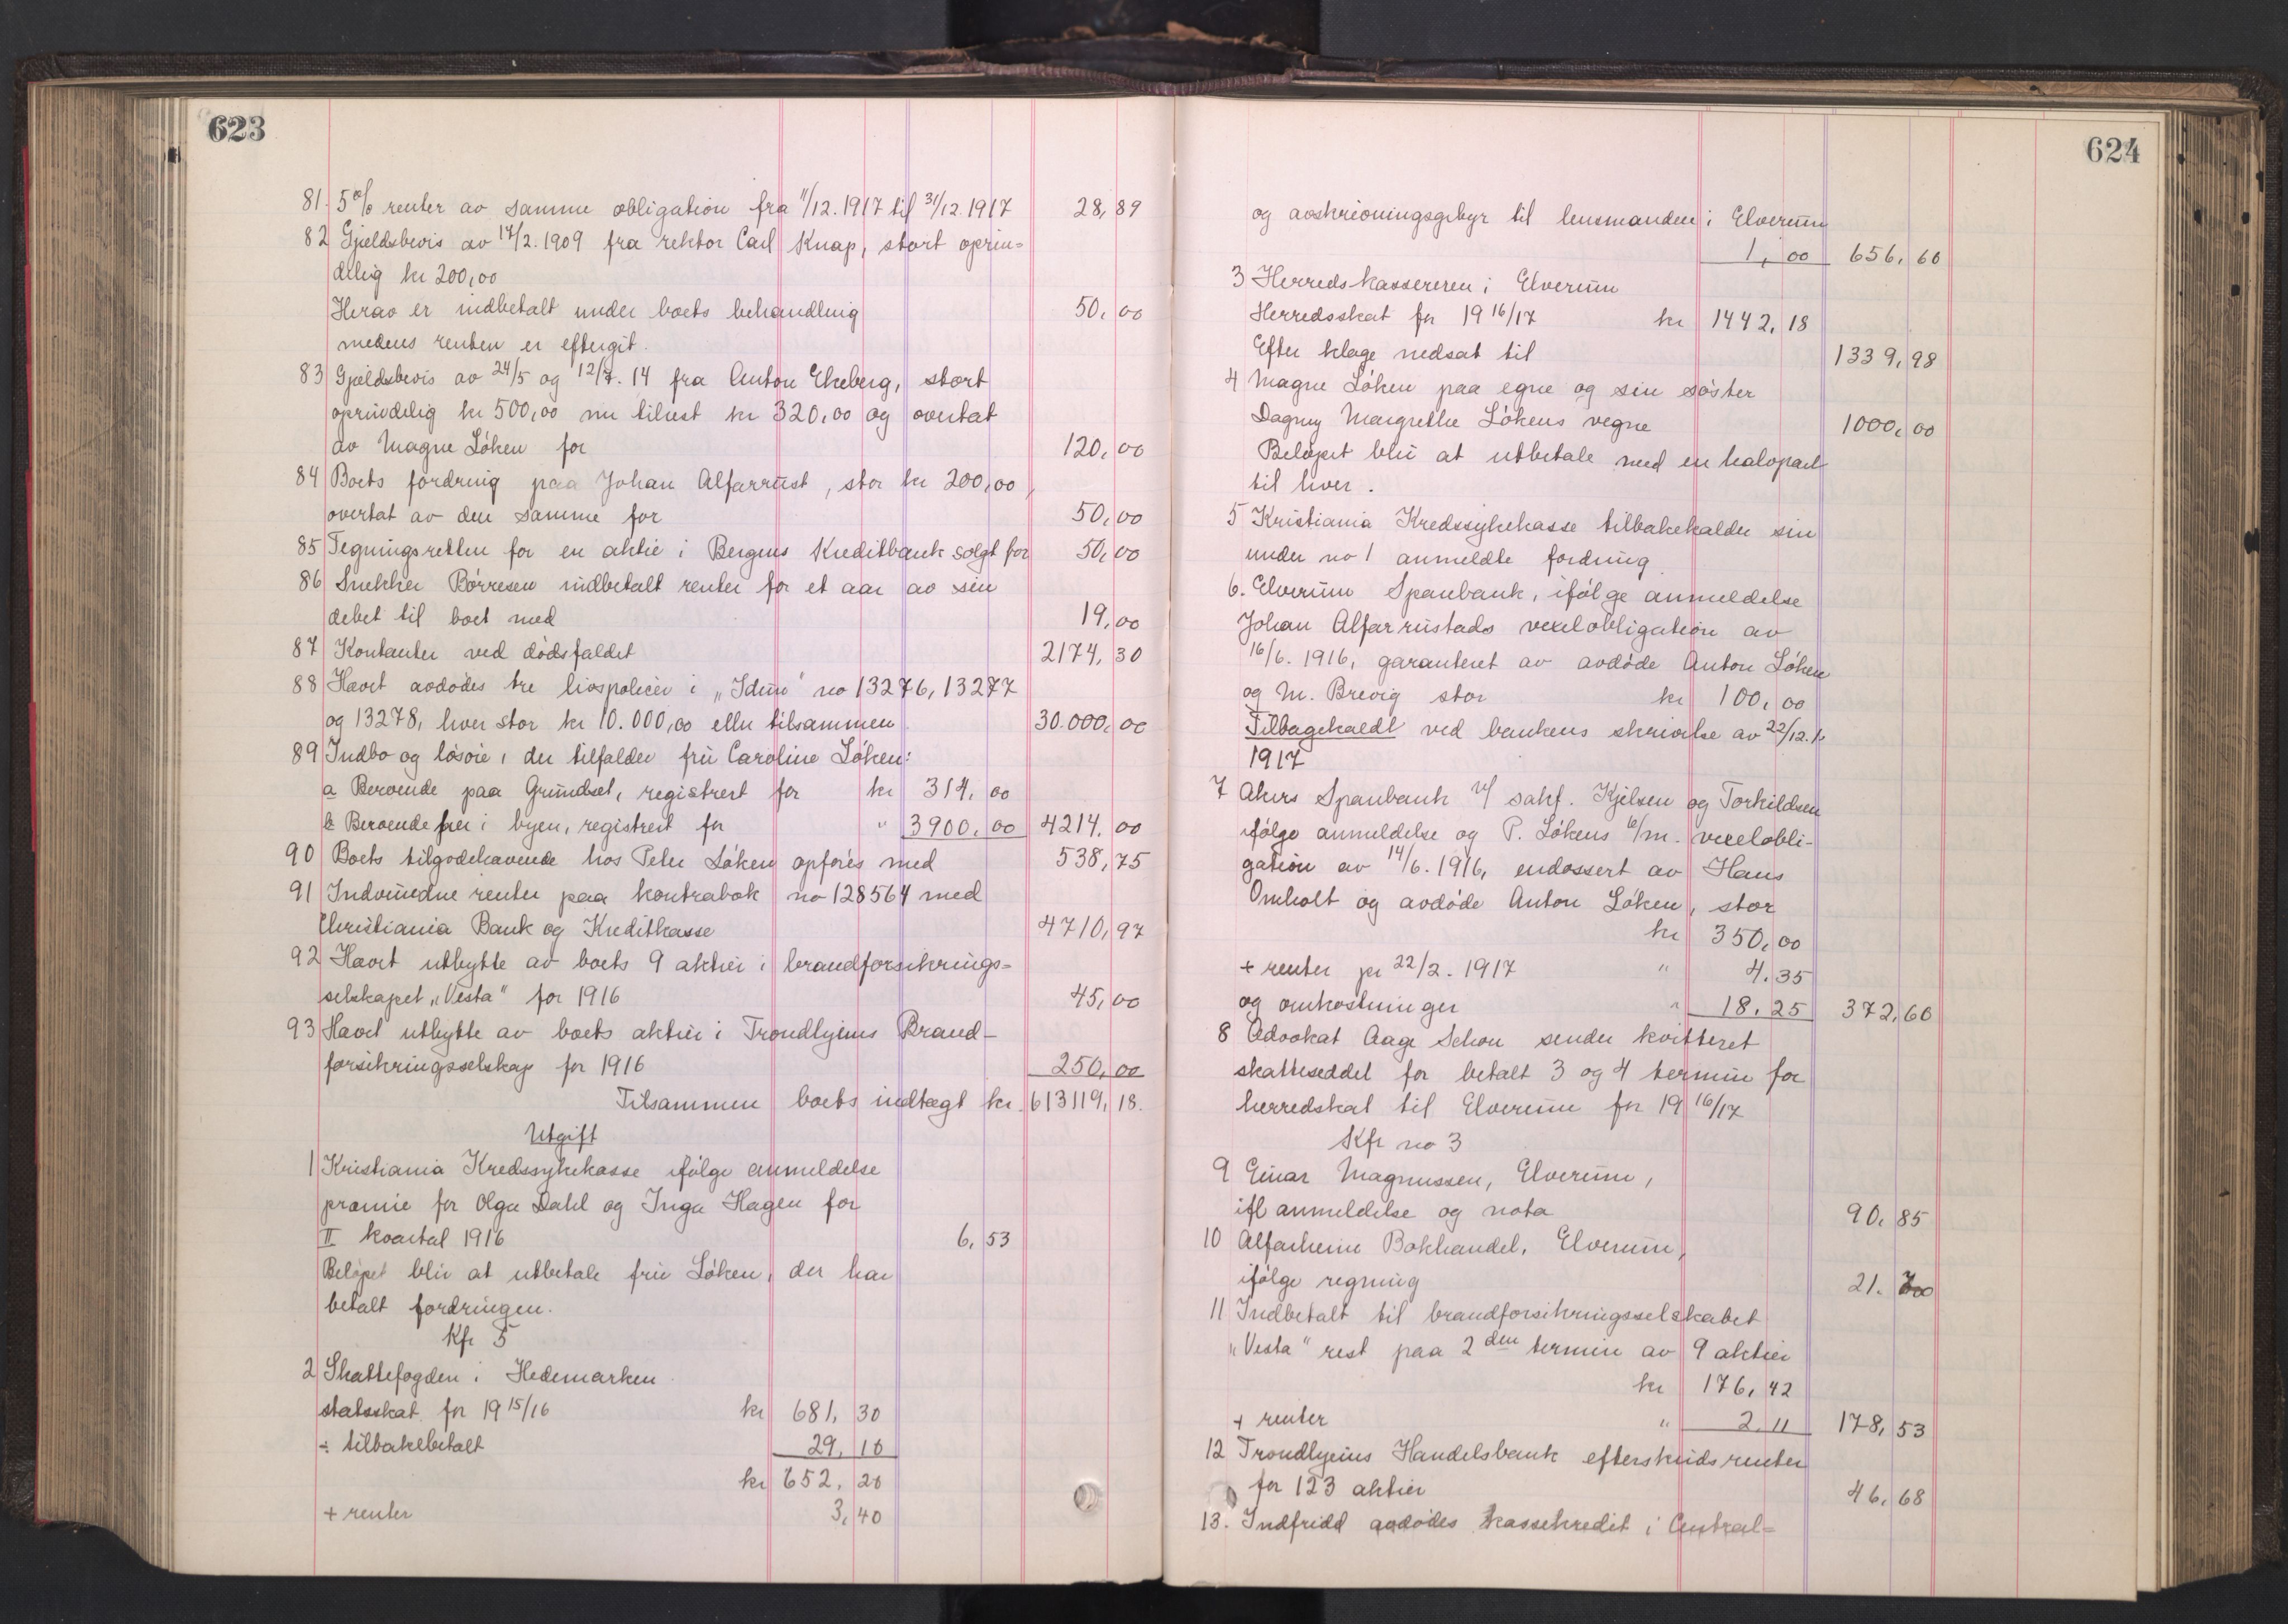 623
81. 5% renter av samme obligation fra 11/12.1917 til 31/12.1917 28,89
82 Gjeldsbevis av 17/2.1909 fra rektor Carl Knap, stort oprin-
delig kr 200,00
Herav er indbetalt under boets behandling 50,00
medens renten er eftergit.
83 Gjeldsbevis av 24/5 og 12/7.14 fra Anton Ekeberg, stort
oprindelig kr 500,00 nu tilrest kr 320,00 og overtat
av Magne Löken for 120,00
84 Boets fordring paa Johan Alfarrust, stor kr 200,00,
overtat av den samme for 50,00
85 Tegningsretten for en aktie i Bergens Kreditbank solgt for 50,00
86 Snekker Börresen indbetalt renter for et aar av sin
debet til boet med 19,00
87 Kontanter ved dödsfaldet 2174,30
88 Hævet avdödes tre livspolicer i „Idun" no 13276, 13277
og 13278, hver stor kr 10.000,00 eller tilsammen 30.000,00
89 Indbo og lösöre, der tilfalder fru Caroline Löken:
a Beroende paa Grundset, registrert for kr 314,00
b Beroende her i byen, registrert for " 3900,00 4214,00
90 Boets tilgodehavende hos Peter Löken opföres med 538,75
91 Indvundne renter paa kontrabok no 128564 med
Christiania Bank og Kreditkasse 4710,97
92 Hævet utbytte av boets 9 aktier i brandforsikrings-
selskapet „Vesta" for 1916 45,00
93 Hævet utbytte av boets aktier i Trondhjems Brand-
forsikringsselskap for 1916 250,00
Tilsammen boets indtægt kr. 613119,18.
Utgift
1 Kristiania Kredssykekasse ifölge anmeldelse
præmie for Olga Dahl og Inga Hagen for
II kvartal 1916 6,53
Belöpet blir at utbetale fru Löken, der har
betalt fordringen.
Kfr 5
2 Skattefogden i Hedemarken
statsskat for 1915/16 kr 681,30
÷ tilbakebetalt 29,10
kr 652,20
+ renter 3,40
624
og avskrivningsgebyr til lensmanden i Elverum
1,00 656,60
3 Herredskassereren i Elverum
Herredsskat for 1916/17 kr 1442,18
Efter klage nedsat til 1339,98
4 Magne Löken paa egne og sin söster
Dagny Margrethe Lökens vegne 1000,00
Belöpet blir at utbetale med en halvpart
til hver.
5 Kristiania Kredssykekasse tilbakekalder sin
under no 1 anmeldte fordring
6. Elverum Sparebank, ifölge anmeldelse
Johan Alfarrustads vexelobligation av
16/6.1916, garanteret av avdöde Anton Löken
og M. Brevig stor kr 100,00
Tilbagekaldt ved bankens skrivelse av 22/12.
1917
7 Akers Sparebank v/ sakf. Kjelsen og Torkildsen
ifölge anmeldelse og P. Lökens 6/m. vexelobli-
gation av 14/6.1916, endossert av Hans
Omholt og avdöde Anton Löken, stor
kr 350,00
+ renter pr 22/2.1917 " 4.35
og omkostninger " 18.25 372,60
8 Advokat Aage Schou sender kvitteret
skatteseddel for betalt 3 og 4 termin for
herredskat til Elverum for 1916/17
Kfr no 3
9 Einar Magnussen, Elverum,
ifl anmeldelse og nota 90,85
10 Alfarheim Bokhandel, Elverum,
ifölge regning 21.
11 Indbetalt til brandforsikringsselskabet
„Vesta" rest paa 2den termin av 9 aktier
kr 176,42
+ renter " 2.11 178,53
12 Trondhjems Handelsbank efterskudsrenter
for 123 aktier 46,68
13. Indfridd avdödes kassekredit i Central-